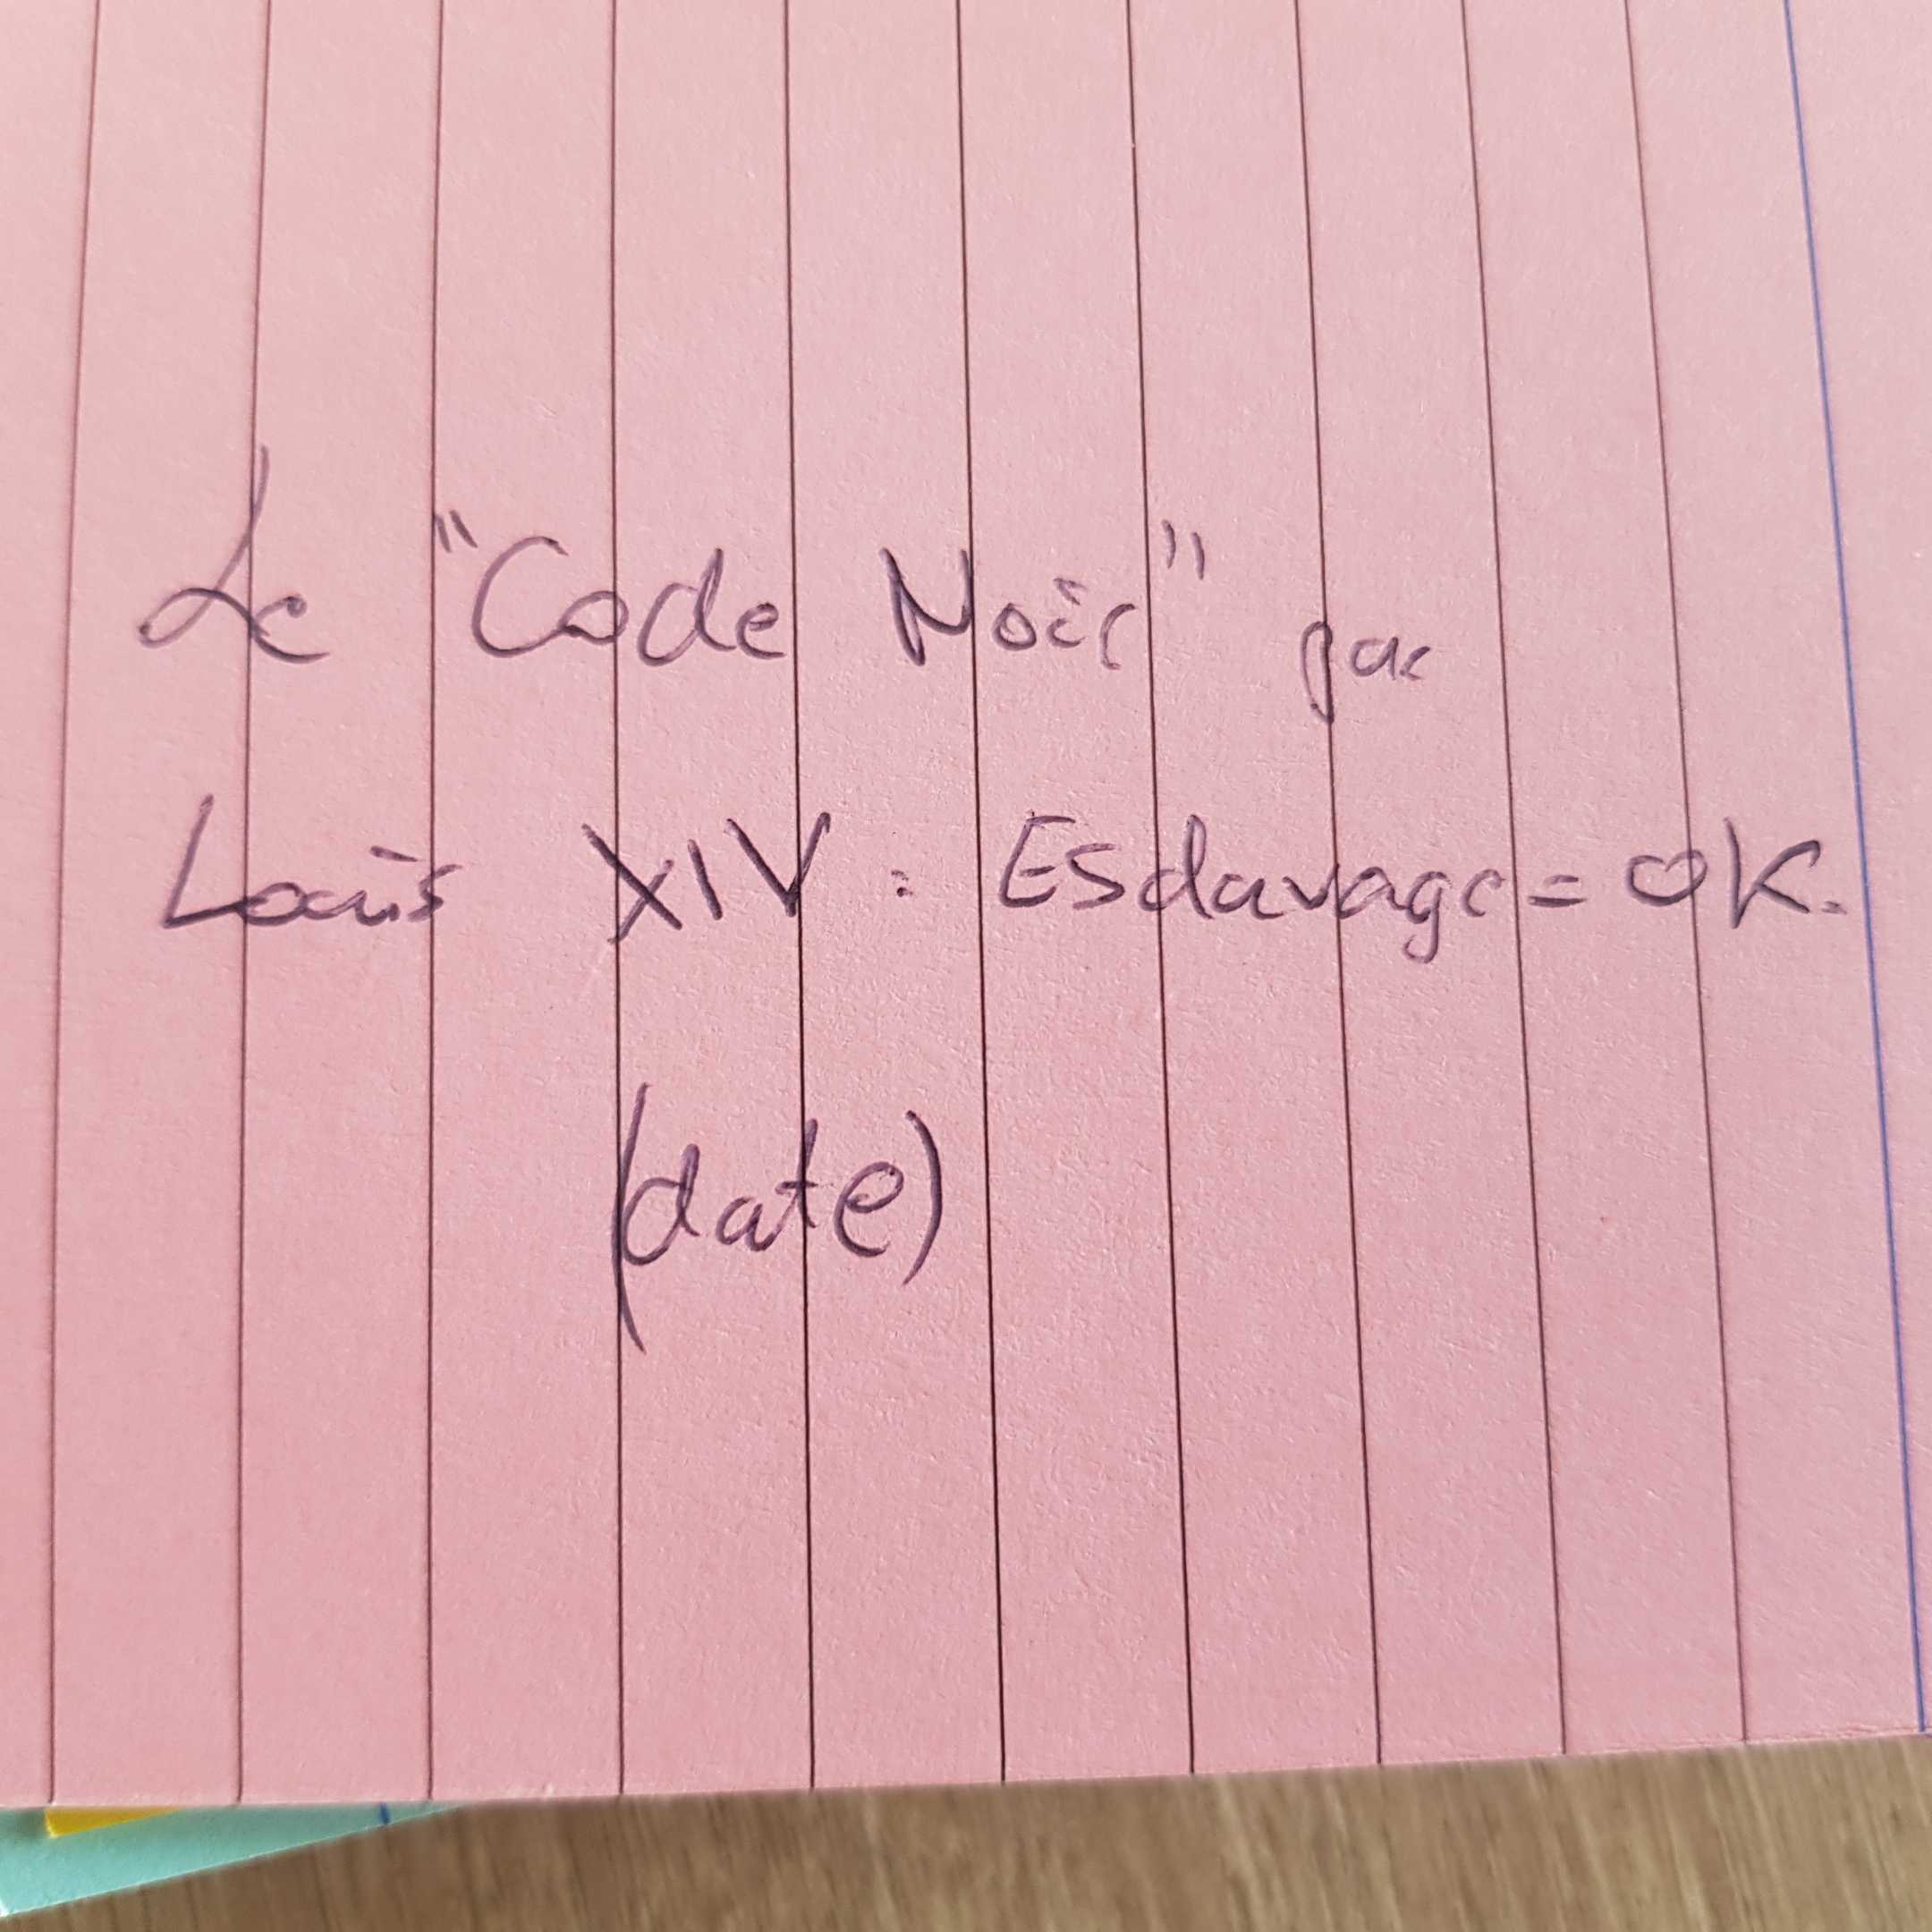 Le "Code Noir" par
Louis XIV : Esclavage = OK.
(date)